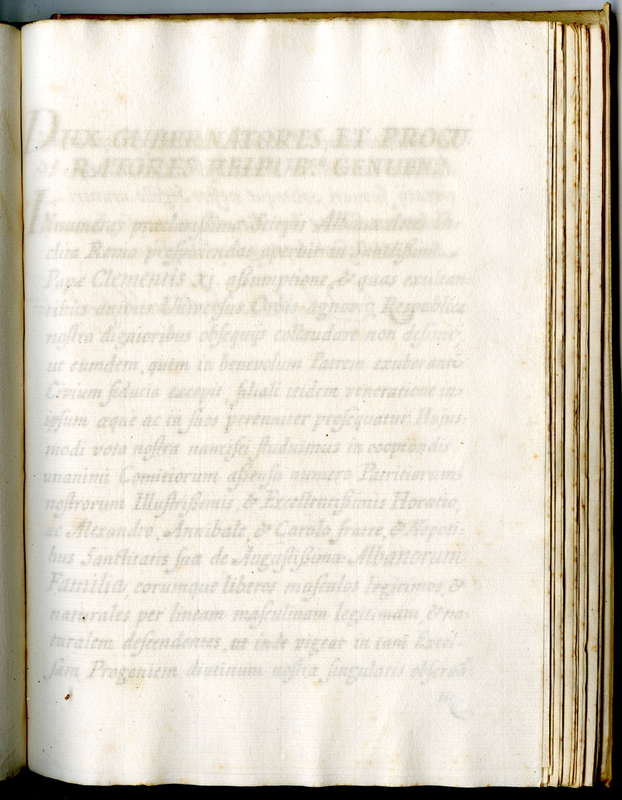 DUX GUBERNATORES ET PROCU
RATORES REIPUB. GENUENS.
clita Roma aperuit in Sanctissimi
Papæ Clementis XI. assumptione, & quas exultan
tibus animis Universus Orbis agnovit, Respublica
nostra dignioribus obsequijs collaudare non desinit,
ut eumdem, quem in benevolum Patrem exuberanti
Civium fiducia excepit, filiali itidem veneratione in
ipsum æque ac in suos perenniter prosequatur. Hujus-
modi vota nostra nancisci studuimus in cooptandis
unanimi Comitiorum assensu numero Patritiorum
nostrorum Illustrissimis, & Excellentissimis Horatio,
ac Alexandro, Annibale, & Carolo fratre, & Nepoti-
bus Sanctitatis suæ de Augustissima Albanorum
Familia, eorumque liberos masculos legitimos, &
naturales per lineam masculinam legitimam, & na
turalem descendentes, ut inde vigeat in tam Excel-
sam Progeniem diutinum nostræ singularis